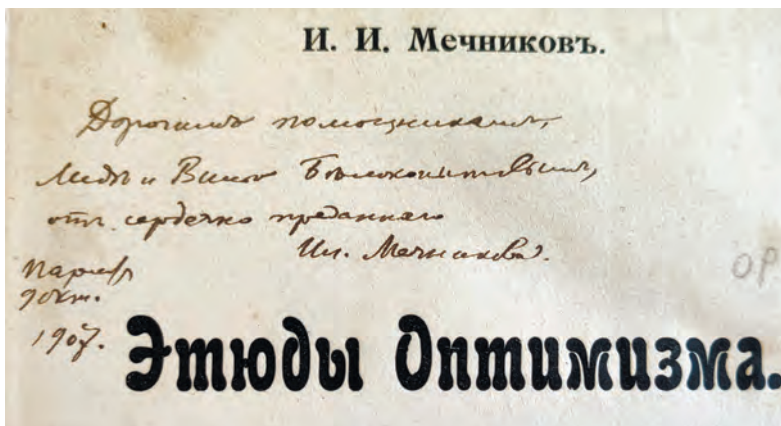 И. И. Мечниковъ.
Дорогимъ помощникамъ,
Лидѣ и Вилѣ Бѣлокопытовымъ,
отъ сердечно преданнаго
Ил. Мечникова.
Парижъ
9 окт.
1907.
ОР
Этюды Оптимизма.